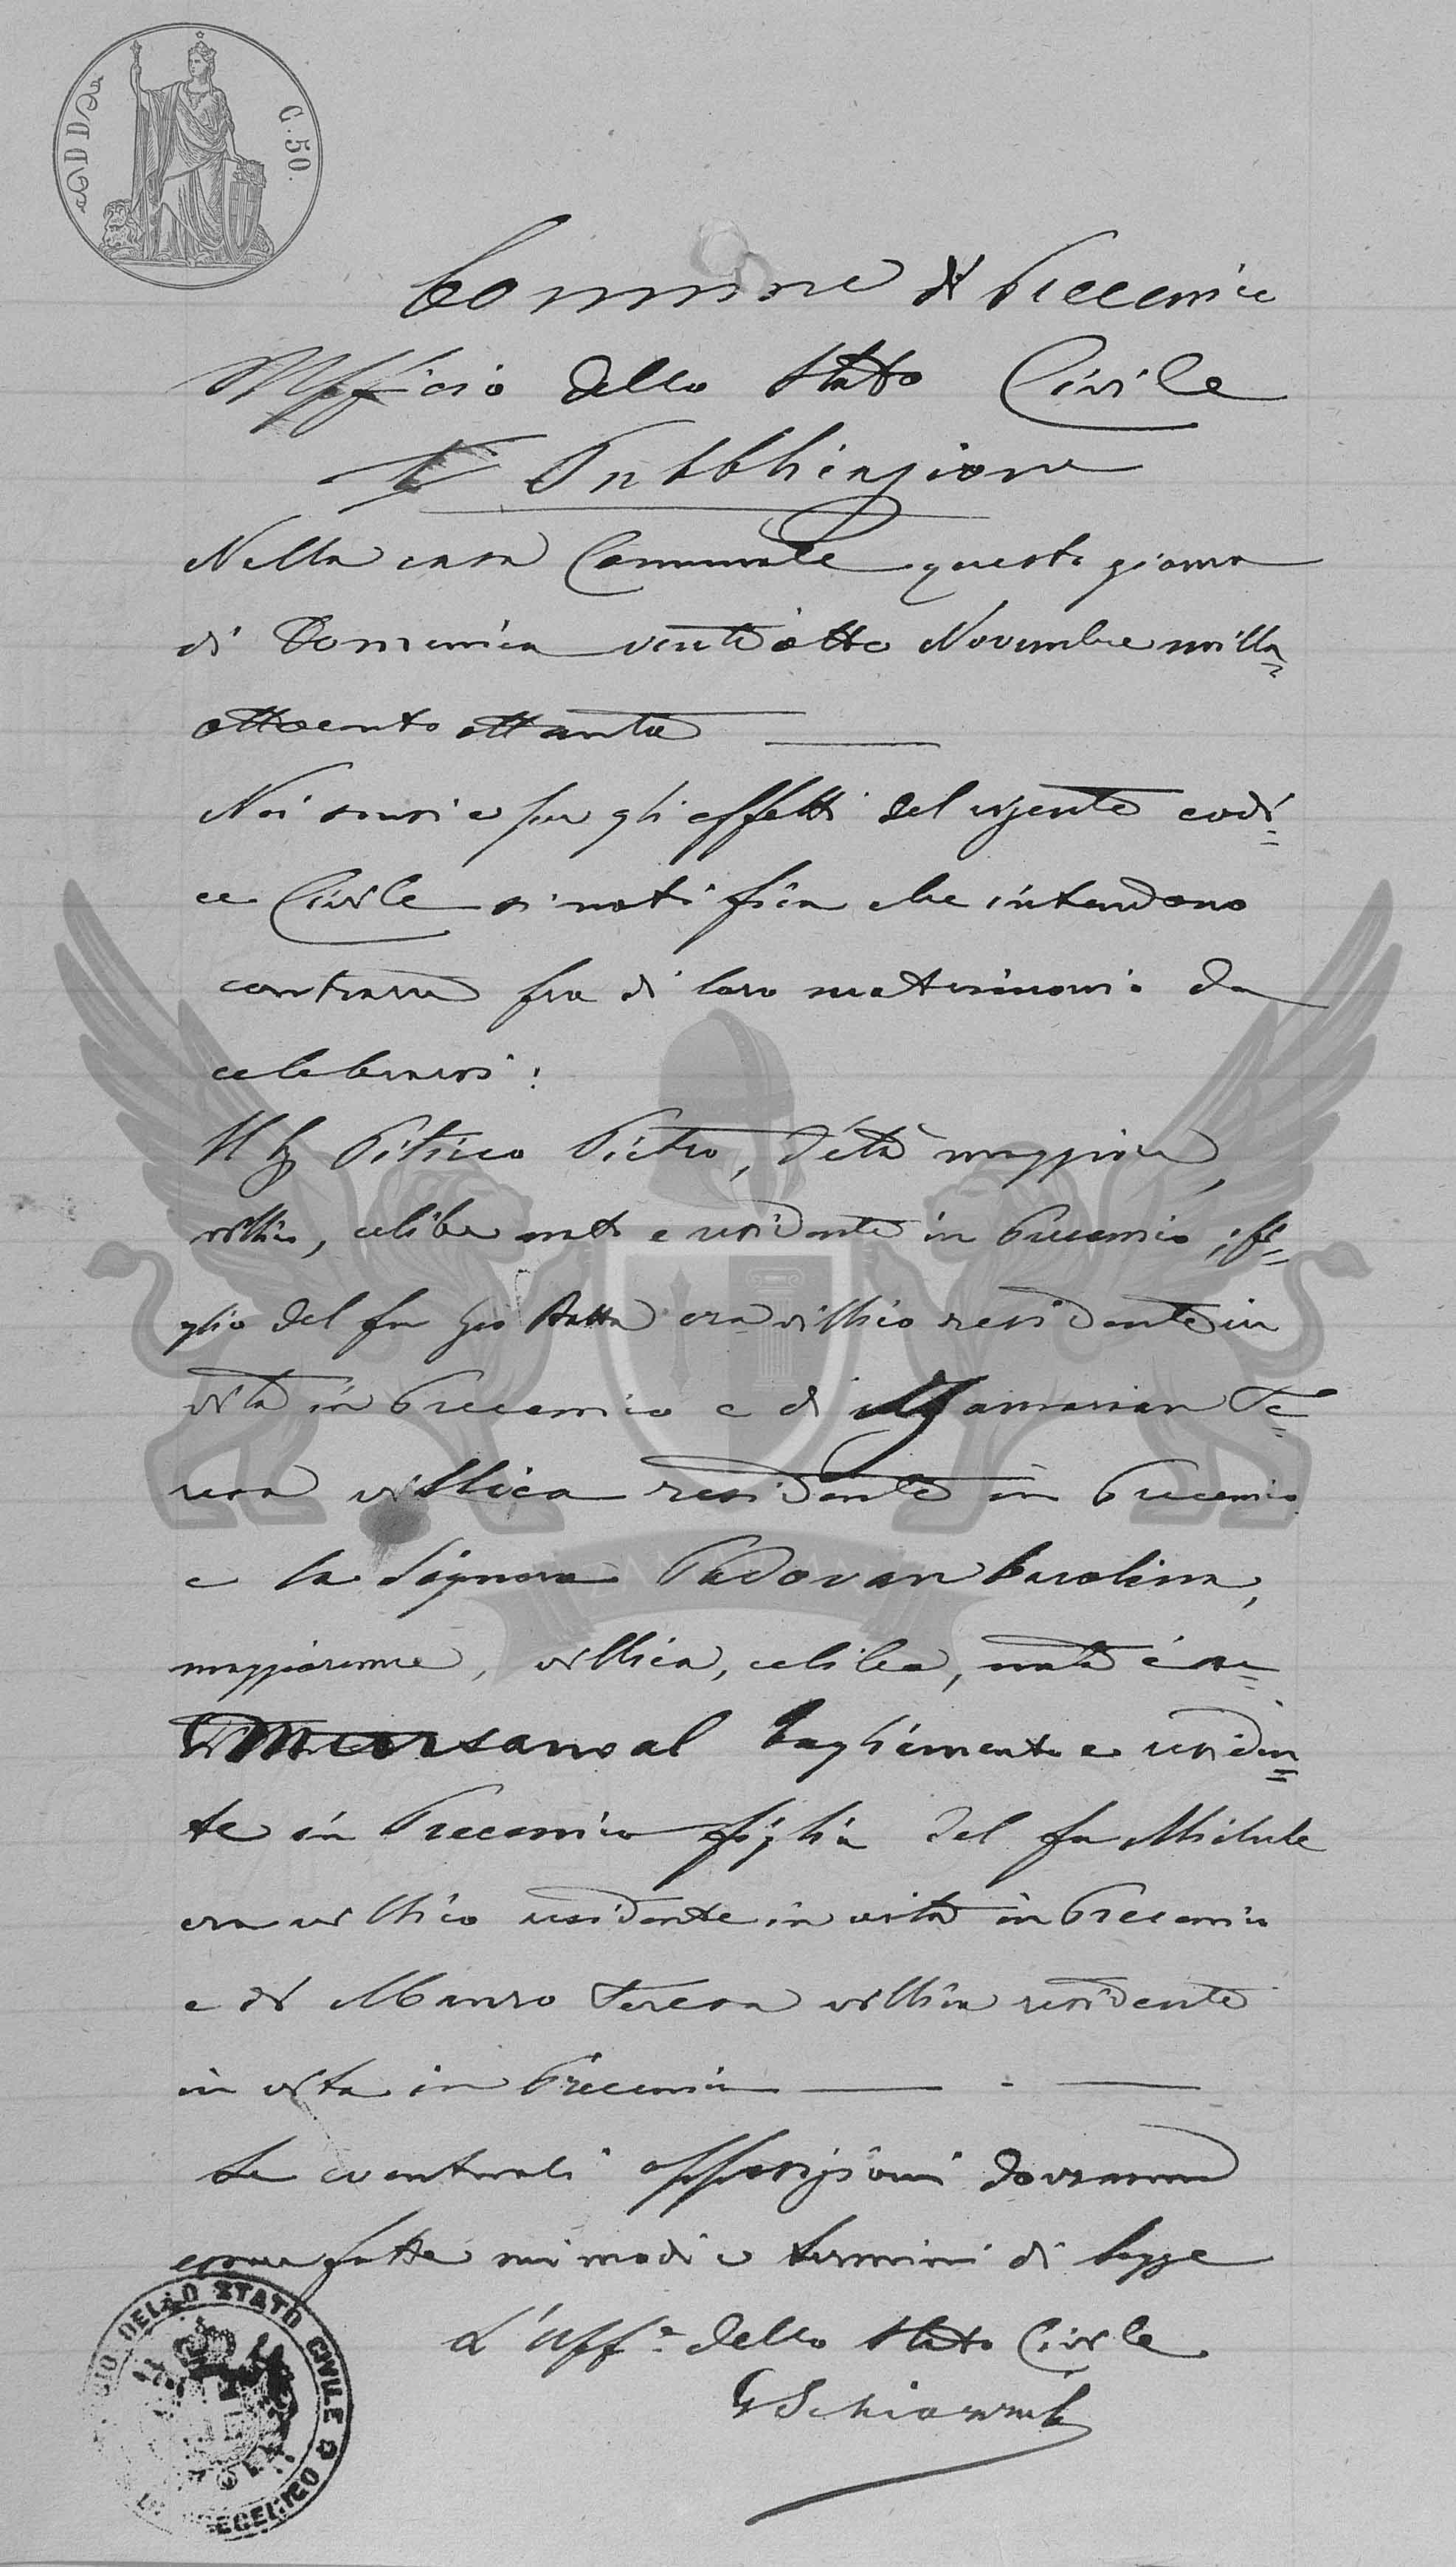 C. 50.
Comune di Precenico
Ufficio dello Stato Civile
Pubblicazione
Nella casa Comunale questo giorno
di Domenica ventiotto Novembre mille=
ottocento ottanta
Nei sensi e per gli effetti del vigente codi=
ce Civile si notifica che intendono
contrarre fra di loro matrimonio da
celebrarsi:
Il Sig Pitrico Pietro, d'età maggiore,
villico, celibe nato e residente in Precenico, fi=
glio del fu Gio Batta era villico residente in
vita in Precenico e di Zamarian Te=
resa villica residente in Precenico
e la Signora Padovan Carolina,
maggiorenne, villica, celibe, nata
Morsano al Tagliamento e residen=
te in Precenico figlia del fu Michele
era villico residente in vita in Precenico
e di Mauro Teresa villica residente
in vita in Precenico
Le eventuali opposizioni dovranno
essere fatte nei modi e termini di legge
L'Uff.e dello Stato Civile
DELLO STATO CIVILE